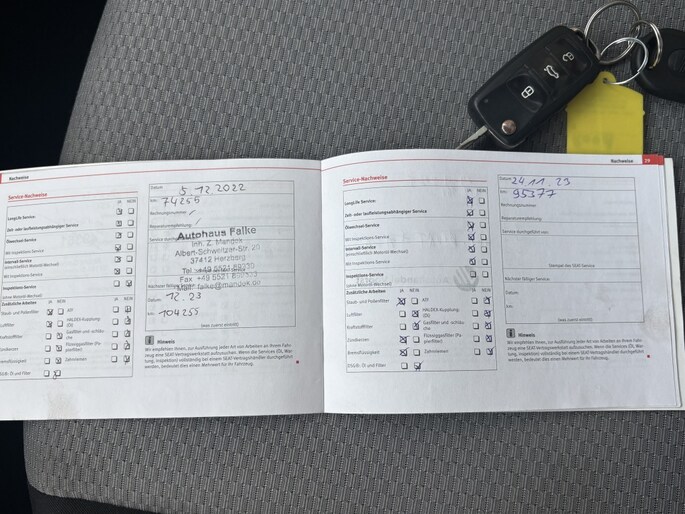 Nachweise
Service-Nachweise
JA NEIN
LongLife Service:
Zeit- oder laufleistungsabhängiger Service
Ölwechsel-Service:
Mit Inspektions-Service
Intervall-Service
(einschließlich Motoröl-Wechsel)
Mit Inspektions-Service
Inspektions-Service
(ohne Motoröl-Wechsel)
Zusätzliche Arbeiten JA NEIN JA NEIN
Staub- und Pollenfilter
Luftfilter
HALDEX-Kupplung:
(Öl)
Kraftstofffilter
Gasfilter und -schläuche
Zündkerzen
Flüssiggasfilter (Papierfilter)
Bremsflüssigkeit
Zahnriemen
DSG®: Öl und Filter
Datum:
5.12.2022
km: 74255
Rechnungsnummer
Reparaturempfehlung:
Service durchgeführt
Autohaus Falke
Inh. Z. Mandek
Albert-Schweitzer-Str. 20
37412 Herzberg
Tel.
Fax +49 5521
Mail: falke@mandek.de
Nächster fälliger Service
Datum: 12.23
km: 104255
(was zuerst eintritt)
Hinweis
Wir empfehlen Ihnen, zur Ausführung jeder Art von Arbeiten an Ihrem Fahr-
zeug eine SEAT Vertragswerkstatt aufzusuchen. Wenn die Services (Öl, War-
tung, Inspektion) vollständig bei einem SEAT-Vertragshändler durchgeführt
werden, bedeutet dies einen Mehrwert für Ihr Fahrzeug.
Nachweise 29
Service-Nachweise
JA NEIN
LongLife Service:
Zeit- oder laufleistungsabhängiger Service
Ölwechsel-Service
Mit Inspektions-Service
Intervall-Service
(einschließlich Motoröl-Wechsel)
Mit Inspektions-Service
Inspektions-Service
(ohne Motoröl-Wechsel)
Zusätzliche Arbeiten JA NEIN JA NEIN
Staub- und Pollenfilter
Luftfilter
HALDEX-Kupplung:
(Öl)
Kraftstofffilter
Gasfilter und -schläuche
Zündkerzen
Flüssiggasfilter (Papierfilter)
Bremsflüssigkeit
Zahnriemen
DSG®: Öl und Filter
Datum:
24 11. 23
km: 95377
Rechnungsnummer
Reparaturempfehlung:
Service durchgeführt von:
Stempel des SEAT-Service
Nächster fälliger Service
Datum:
km:
(was zuerst eintritt)
Hinweis
Wir empfehlen Ihnen, zur Ausführung jeder Art von Arbeiten an Ihrem Fahr-
zeug eine SEAT Vertragswerkstatt aufzusuchen. Wenn die Services (Öl, War-
tung, Inspektion) vollständig bei einem SEAT-Vertragshändler durchgeführt
werden, bedeutet dies einen Mehrwert für Ihr Fahrzeug.